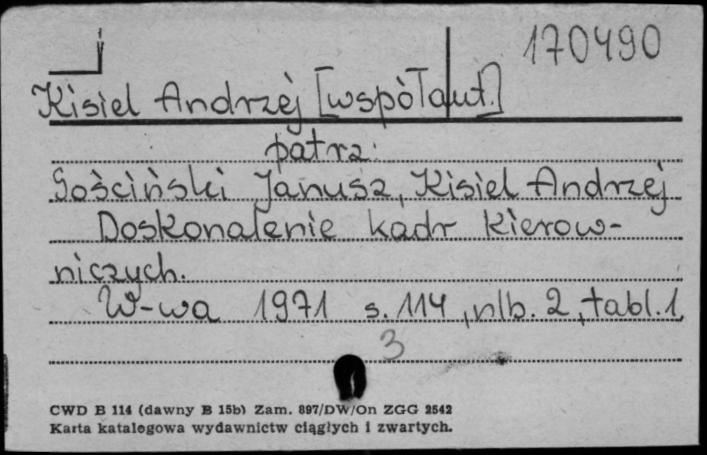 170490
Kisiel Andrzej [współaut.]
patrz:
Gościński Janusz, Kisiel Andrzej
Doskonalenie kadr kierow-
niczych.
W-wa 1971 s. 114, nlb. 2, tabl. 1
3
CWD B 114 (dawny B 15b) Zam. 897/DW/On ZGG 2542
Karta katalogowa wydawnictw ciągłych i zwartych.